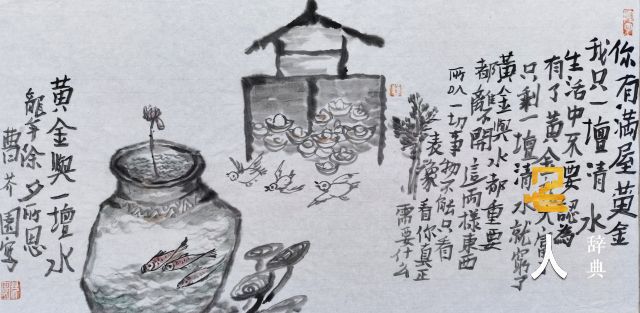 你有满屋黄金
我只一壇清水
生活中不要認為
有了黄金大富
只剩一壇清水就窮了
黃金與水都重要
都離不開這兩樣東西
所以一切事
物不能只看
表象看你真正
需要什么
黄金與一壇水
龍年除夕所思
曹芥園寫
人
辞典